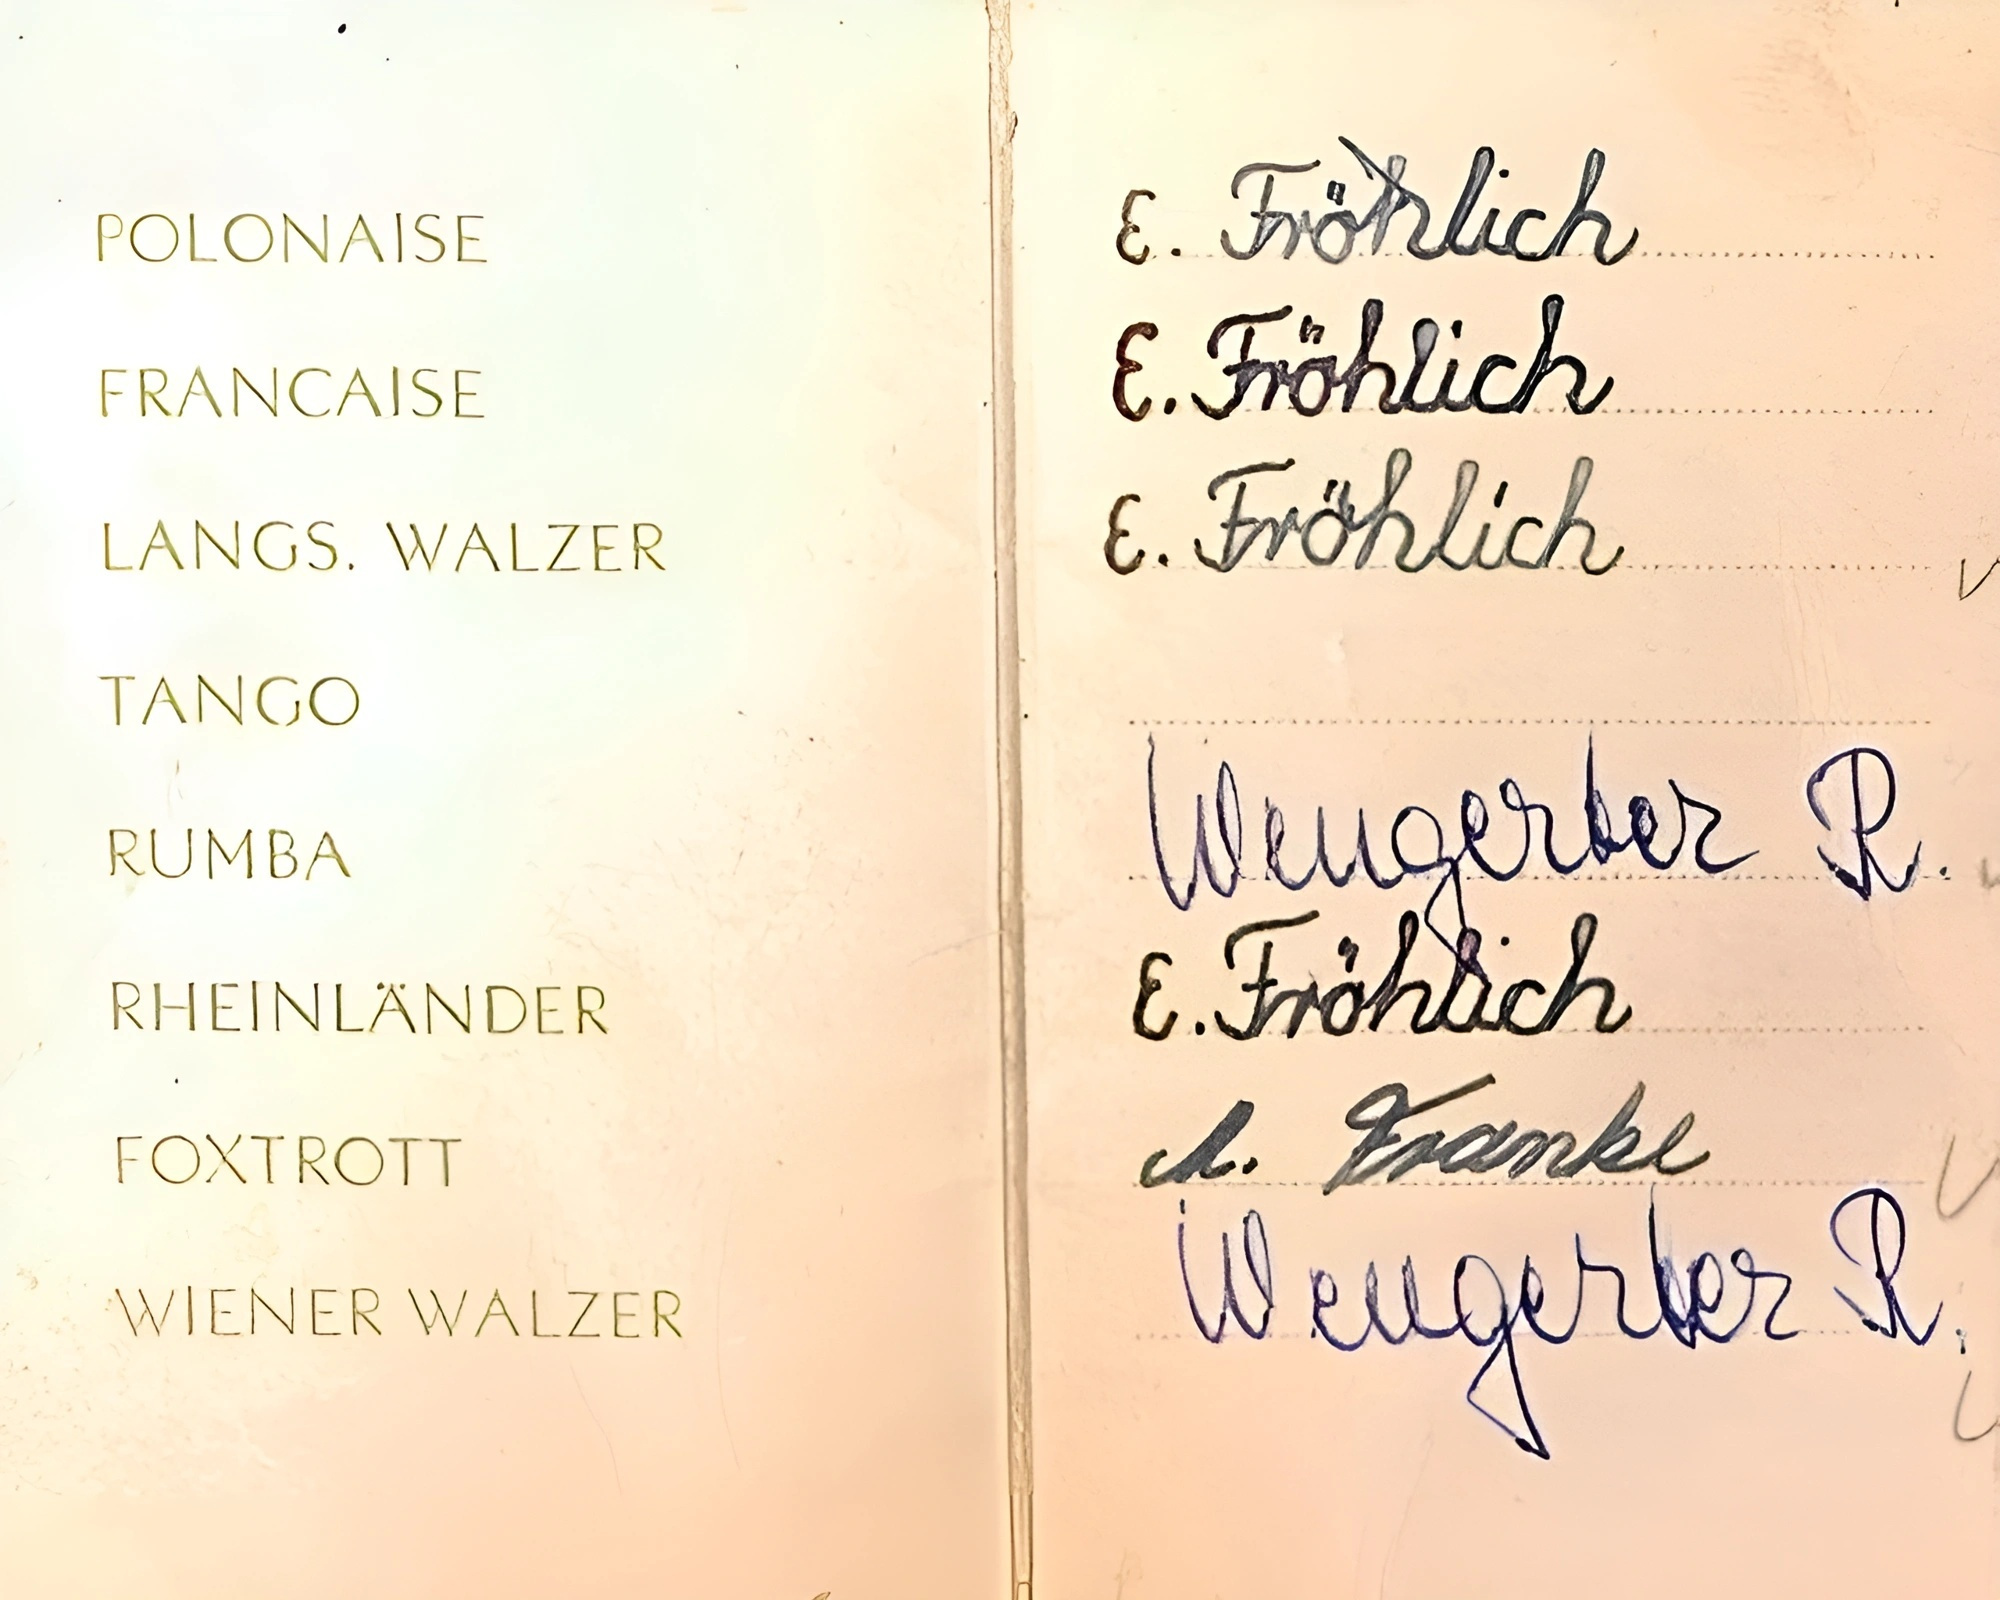 POLONAISE E. Fröhlich
FRANCAISE E. Fröhlich
LANGS. WALZER E. Fröhlich
TANGO
RUMBA Wengerter R.
RHEINLÄNDER E. Fröhlich
FOXTROTT A. Franke
WIENER WALZER Wengerter R.